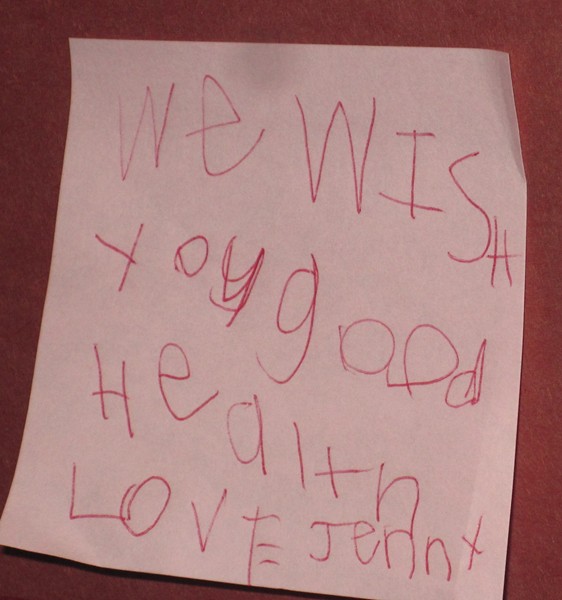 We WISH
you good
Health
LOVE Jenny